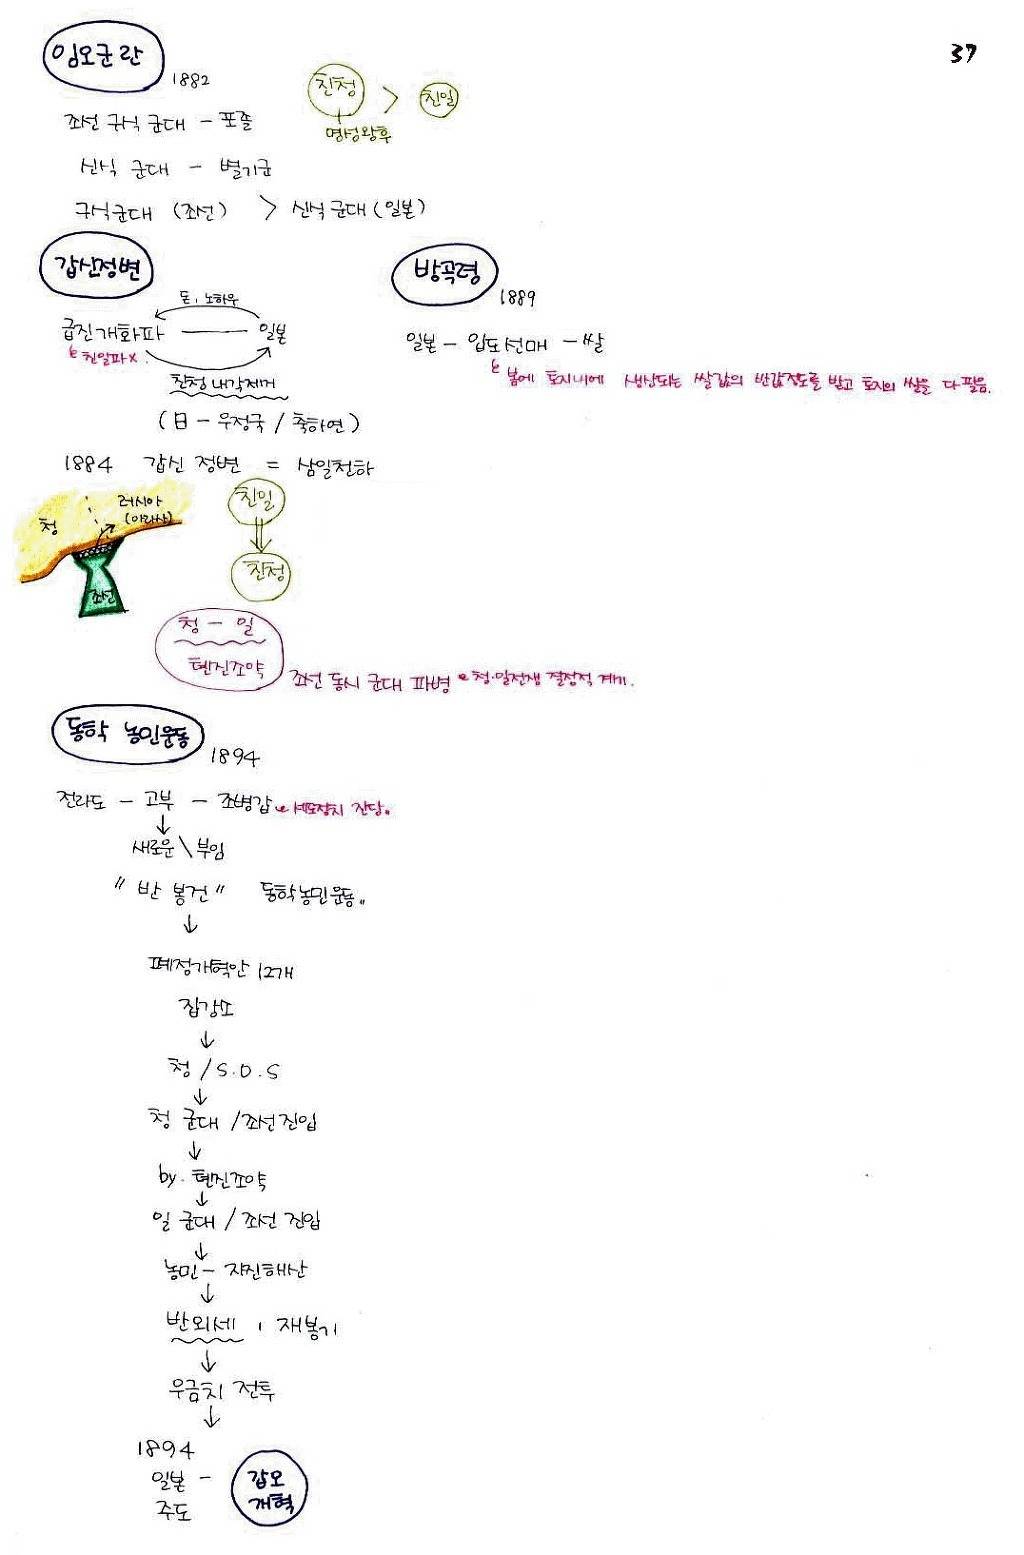 37
임오군란
1882
친청 > 친일
명성왕후
조선 구식 군대 - 포졸
신식 군대 - 별기군
구식군대 (조선) > 신식군대 (일본)
갑신정변
돈, 노하우
급진개화파 일본
친일파 x.
친청 내각제거
(日 - 우정국 / 축하연)
1884 갑신 정변 = 삼일천하
방곡령
1889
일본 - 입도선매 - 쌀
봄에 토지내에 생산되는 쌀값의 반값정도를 받고 토지의 쌀을 다 팔음.
청
러시아
(아라사)
조선
친일
친청
청 - 일
텐진조약
조선 동시 군대 파병 청·일전쟁 결정적 계기.
동학 농민운동
1894
전라도 - 고부 - 조병갑
새로운 \ 부임
"반 봉건" 동학농민운동.
폐정개혁안 12개
집강소
청 / S.O.S
청 군대 / 조선진입
by. 텐진조약
일 군대 / 조선 진입
농민 - 자진해산
반외세, 재봉기
우금치 전투
1894
일본 -
주도
갑오
개혁